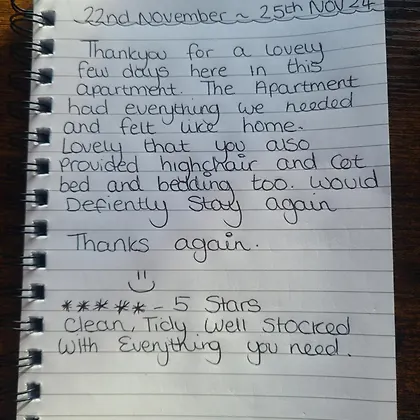 22nd November ~ 25th Nov 24
Thankyou for a lovely
few days here in this
apartment. The Apartment
had everything we needed
and felt like home.
Lovely that you also
Provided highchair and Cot
bed and bedding too. Would
Defiently Stay again
Thanks again.
***** - 5 Stars
Clean, Tidy Well Stocked
With Everything you need.